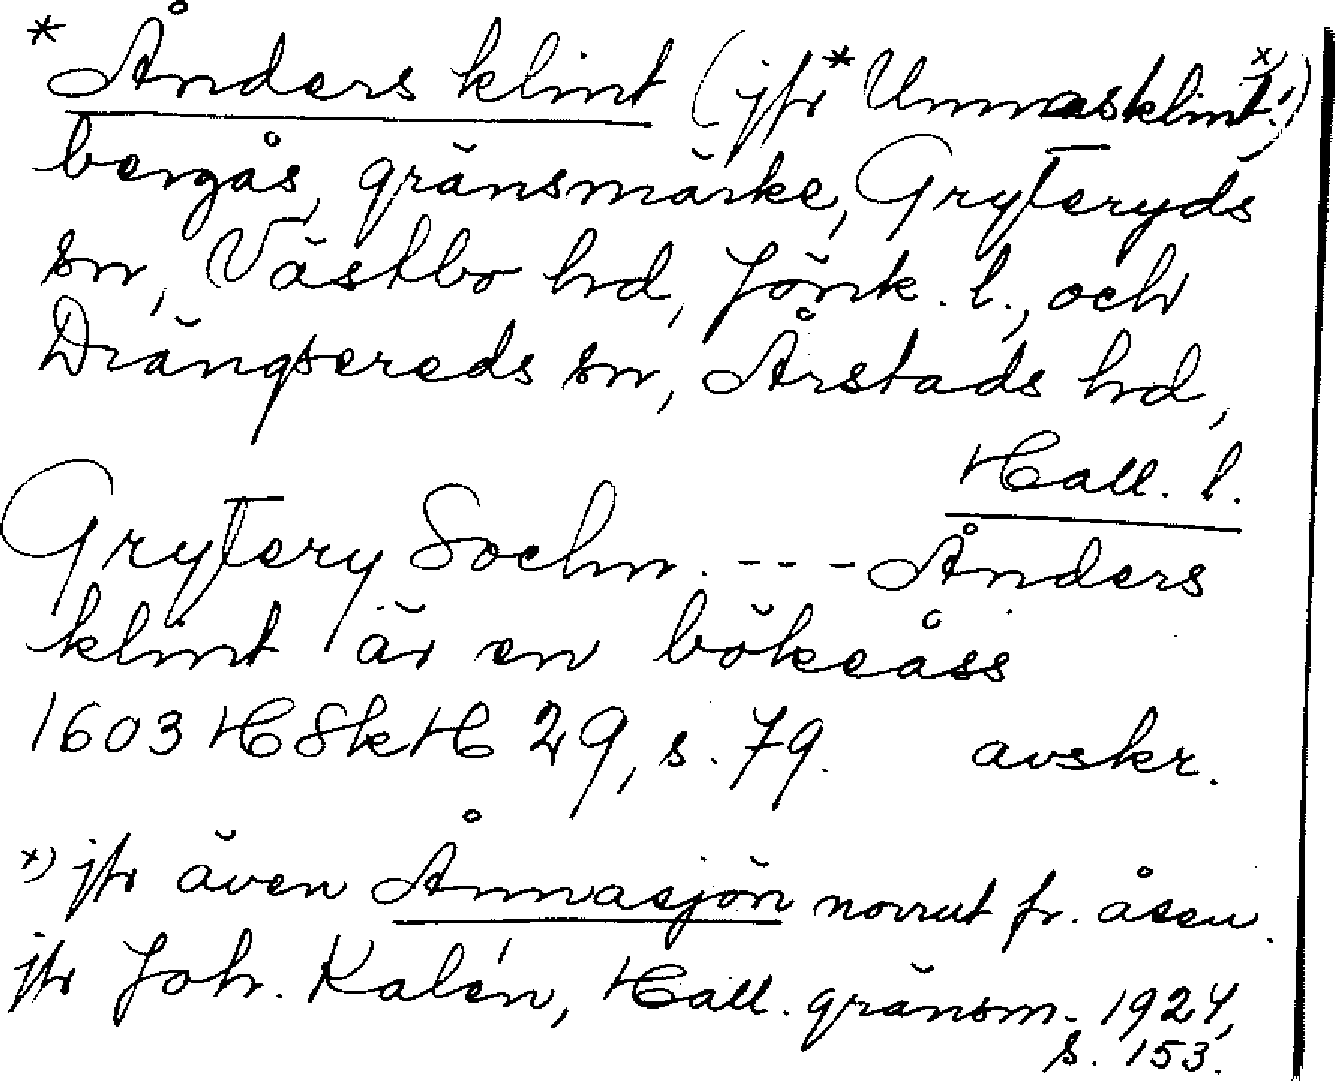 * Ånders klint (jfr *Unnasklint! x))
bergås, gränsmärke, Gryteryds
sn, Västbo hd, Jönk. l., och
Drängsereds sn, Årstads hd,
Hall. l.
Grytery Sochn. --- Ånders
klint är en bökeåss
1603 HSkH 29, s. 79. avskr.
x) jfr även Ånnasjön norrut fr. åsen.
jfr Joh. Kalén, Hall. gränsm. 1924,
s. 153.